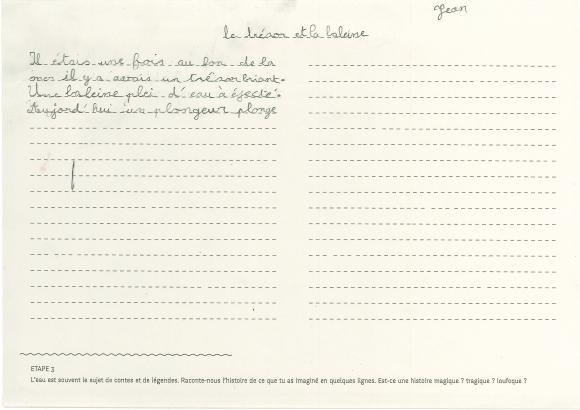 Jean
le trésor et la baleine
Il étais une fois au fon de la
mer il y a avais un trésor briant.
Une baleine plei d'eau à éjecté.
Aujord'hui un plongeur plonge
ETAPE 3
L'eau est souvent le sujet de contes et de légendes. Raconte-nous l'histoire de ce que tu as imaginé en quelques lignes. Est-ce une histoire magique ? tragique ? loufoque ?